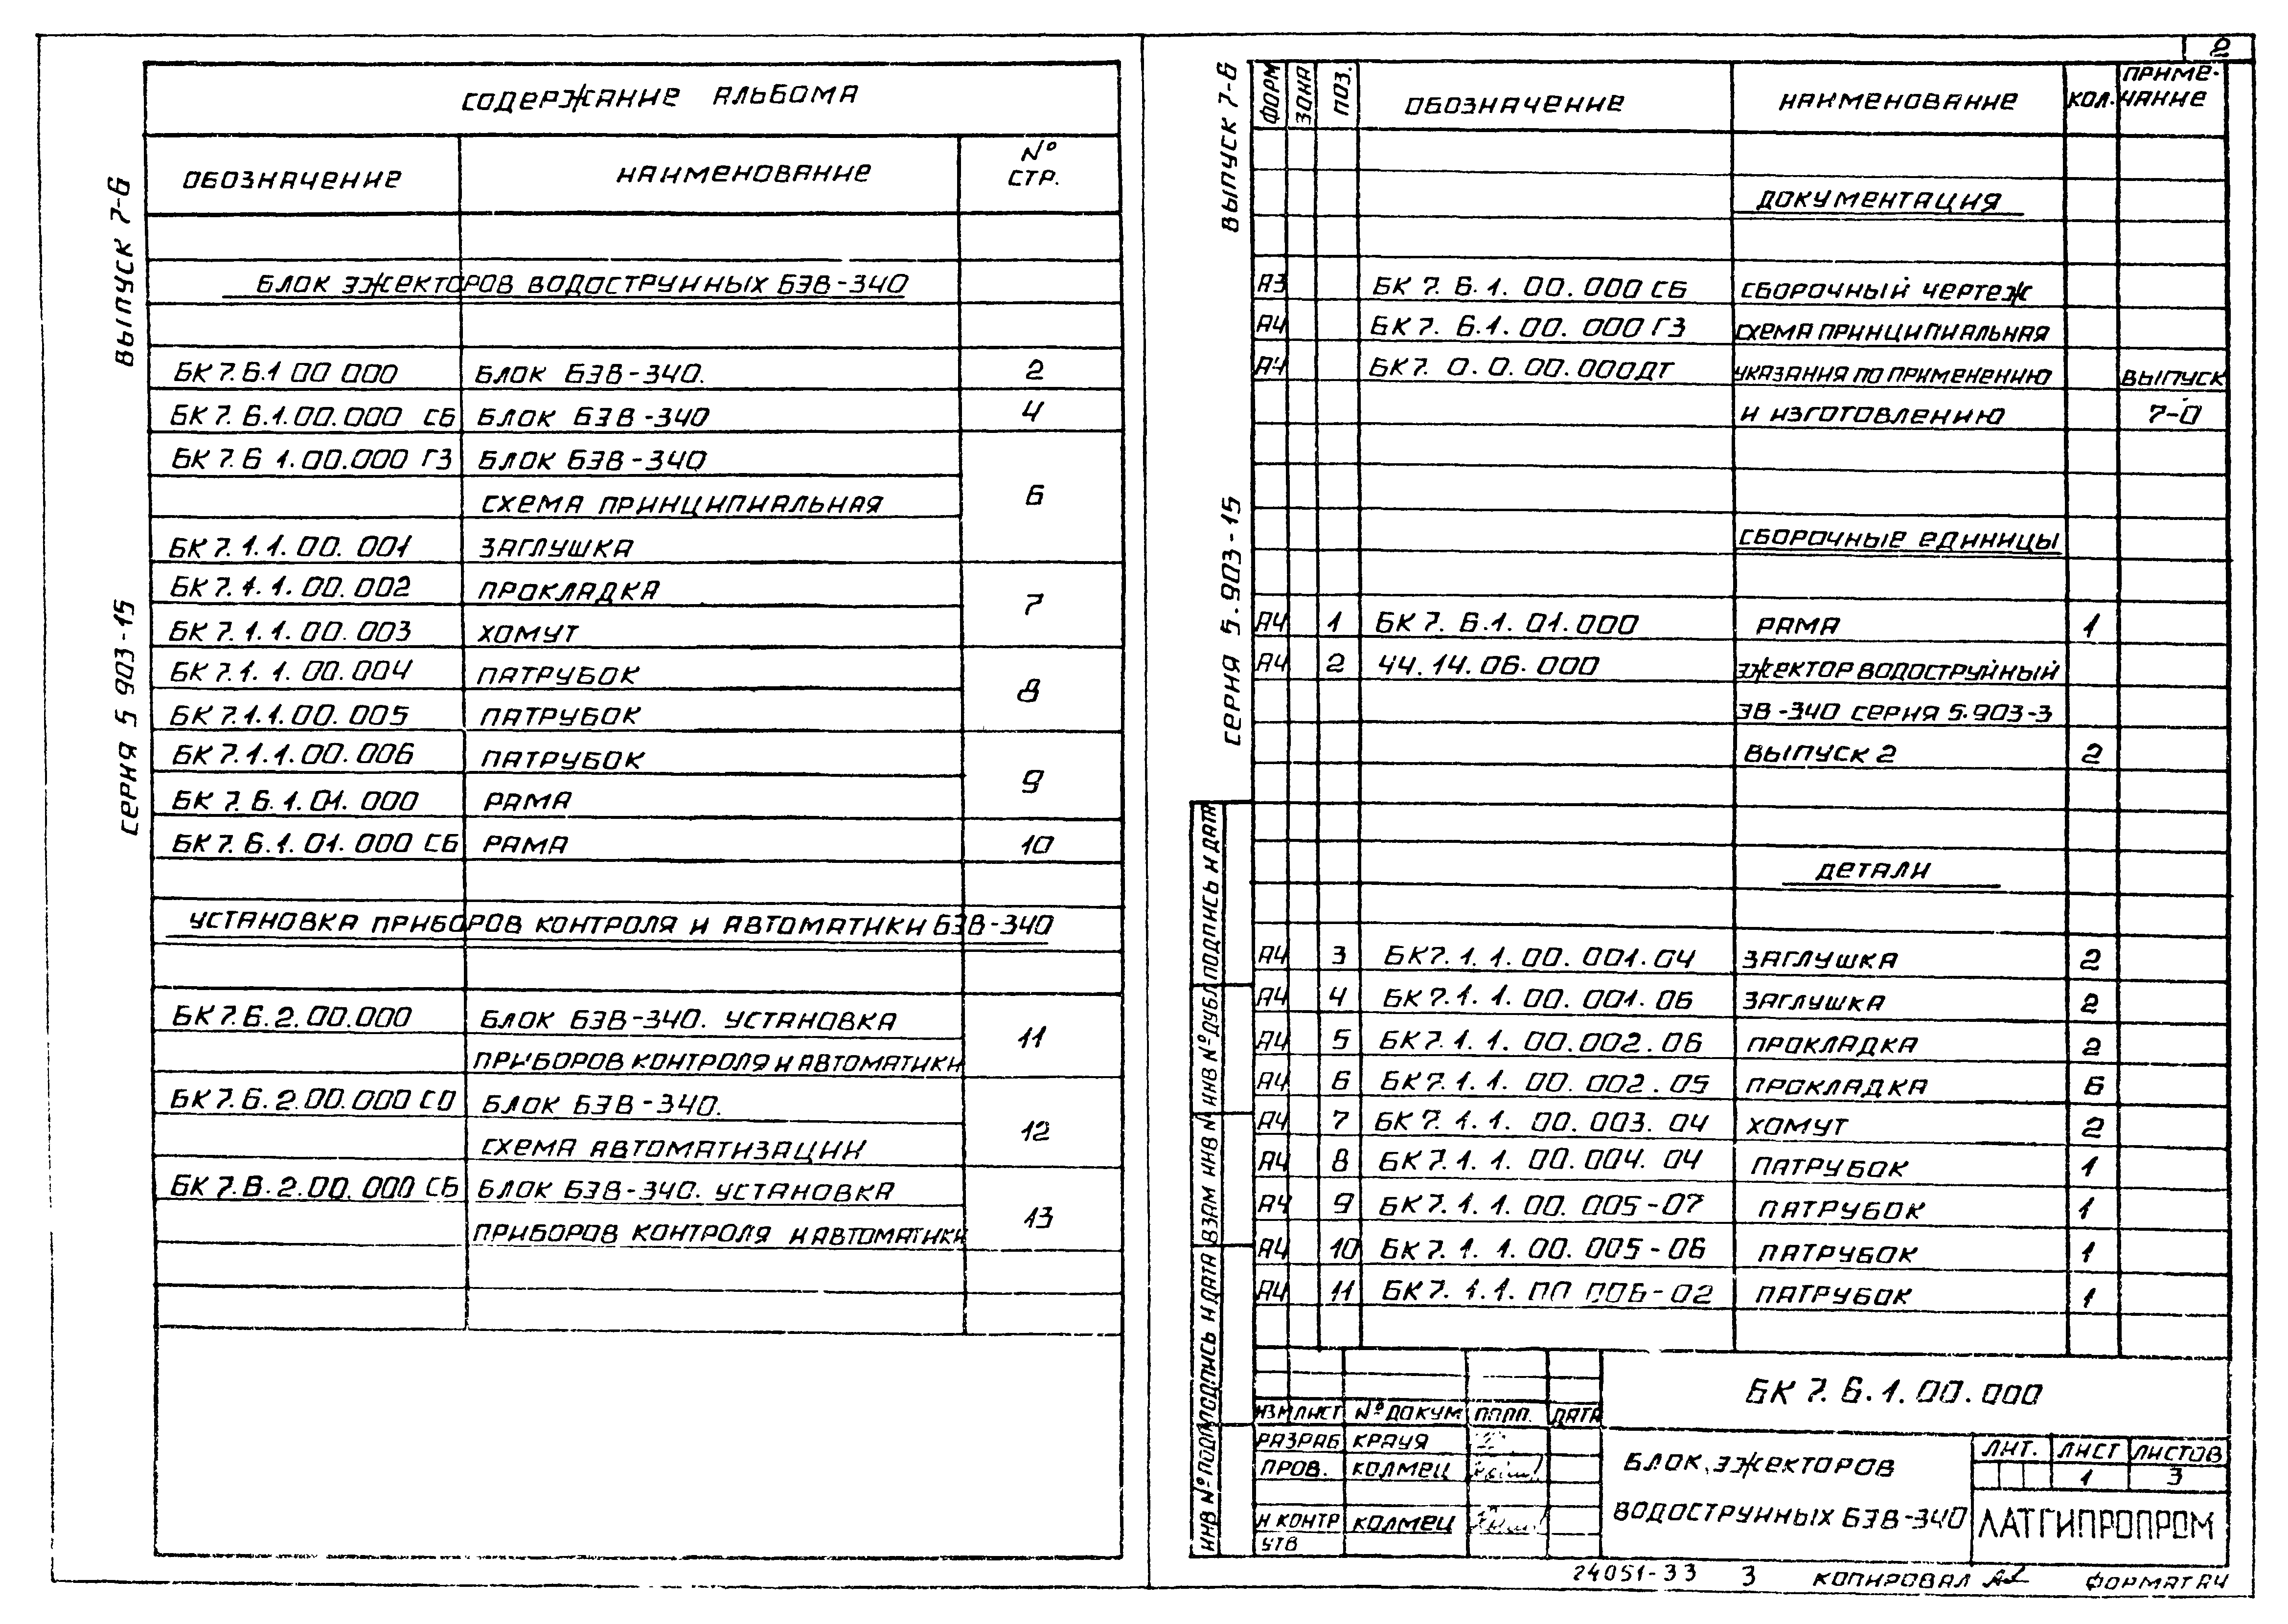 СОДЕРЖАНИЕ АЛЬБОМА
ОБОЗНАЧЕНИЕ НАИМЕНОВАНИЕ № СТР.
БЛОК ЭЖЕКТОРОВ ВОДОСТРУЙНЫХ БЭВ-340
БК 7.6.1 00 000 БЛОК БЭВ-340. 2
БК 7.6.1.00.000 СБ БЛОК БЭВ-340 4
БК 7.6 1.00.000 ГЗ БЛОК БЭВ-340
СХЕМА ПРИНЦИПИАЛЬНАЯ 6
БК 7.1.1.00.001 ЗАГЛУШКА
БК 7.1.1.00.002 ПРОКЛАДКА
7
БК 7.1.1.00.003 ХОМУТ
БК 7.1.1.00.004 ПАТРУБОК
8
БК 7.1.1.00.005 ПАТРУБОК
БК 7.1.1.00.006 ПАТРУБОК
9
БК 7.6.1.01.000 РАМА
БК 7.6.1.01.000 СБ РАМА 10
УСТАНОВКА ПРИБОРОВ КОНТРОЛЯ И АВТОМАТИКИ БЭВ-340
БК 7.6.2.00.000 БЛОК БЭВ-340. УСТАНОВКА
11
ПРИБОРОВ КОНТРОЛЯ И АВТОМАТИКИ
БК 7.6.2.00.000 СО БЛОК БЭВ-340.
12
СХЕМА АВТОМАТИЗАЦИИ
БК 7.В.2.00.000 СБ БЛОК БЭВ-340. УСТАНОВКА
13
ПРИБОРОВ КОНТРОЛЯ И АВТОМАТИКИ
СЕРИЯ 5 903-15 ВЫПУСК 7-6
2
ФОРМ ЗОНА ПОЗ. ОБОЗНАЧЕНИЕ НАИМЕНОВАНИЕ КОЛ. ПРИМЕ-
ЧАНИЕ
ДОКУМЕНТАЦИЯ
А3 БК 7.6.1.00.000 СБ СБОРОЧНЫЙ ЧЕРТЕЖ
А4 БК 7.6.1.00.000 ГЗ СХЕМА ПРИНЦИПИАЛЬНАЯ
А4 БК 7.0.0.00.000ДТ УКАЗАНИЯ ПО ПРИМЕНЕНИЮ ВЫПУСК
И ИЗГОТОВЛЕНИЮ 7-0
СБОРОЧНЫЕ ЕДИНИЦЫ
А4 1 БК 7.6.1.01.000 РАМА 1
А4 2 44.14.06.000 ЭЖЕКТОР ВОДОСТРУЙНЫЙ
ЭВ-340 СЕРИЯ 5.903-3
ВЫПУСК 2 2
ДЕТАЛИ
А4 3 БК 7.1.1.00.001.04 ЗАГЛУШКА 2
А4 4 БК 7.1.1.00.001.06 ЗАГЛУШКА 2
А4 5 БК 7.1.1.00.002.06 ПРОКЛАДКА 2
А4 6 БК 7.1.1.00.002.05 ПРОКЛАДКА 6
А4 7 БК 7.1.1.00.003.04 ХОМУТ 2
А4 8 БК 7.1.1.00.004.04 ПАТРУБОК 1
А4 9 БК 7.1.1.00.005-07 ПАТРУБОК 1
А4 10 БК 7.1.1.00.005-06 ПАТРУБОК 1
А4 11 БК 7.1.1.00 006-02 ПАТРУБОК 1
СЕРИЯ 5.903-15 ВЫПУСК 7-6
ИНВ № ПОДЛ ПОДПИСЬ И ДАТА ВЗАМ ИНВ № ИНВ № ДУБЛ ПОДПИСЬ И ДАТА
БК 7.6.1.00.000
ИЗМ ЛИСТ № ДОКУМ ПОДП. ДАТА
РАЗРАБ КРАУЯ
ПРОВ. КОЛМЕЦ
Н КОНТР КОЛМЕЦ
УТВ
БЛОК ЭЖЕКТОРОВ
ВОДОСТРУЙНЫХ БЭВ-340
ЛИТ. ЛИСТ ЛИСТОВ
1 3
ЛАТГИПРОПРОМ
24051-33 3 КОПИРОВАЛ ФОРМАТ А4